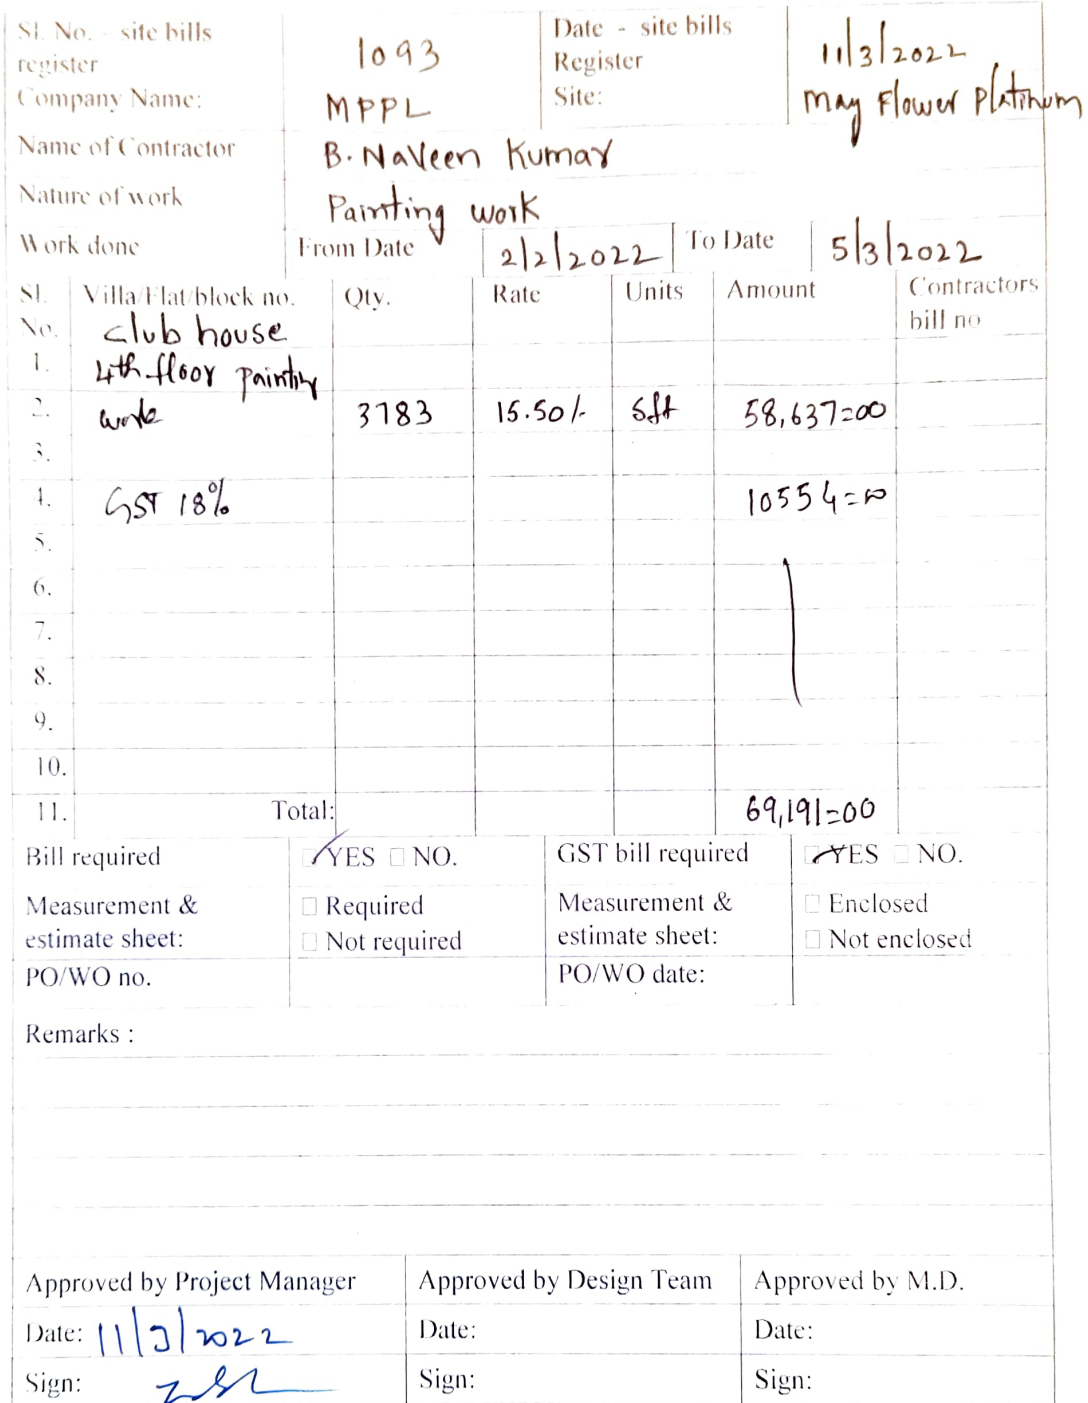 Sl. No. - site bills register 1093 Date - site bills Register 11/3/2022
Company Name: MPPL Site: May Flower Platinum
Name of Contractor B. Naveen Kumar
Nature of work Painting work
Work done From Date 2/2/2022 To Date 5/3/2022
Sl. No. Villa/Flat/block no. Qty. Rate Units Amount Contractors bill no
club house
1. 4th floor painting
2. work 3783 15.50/- sft 58,637=00
3.
4. GST 18% 10554=00
5.
6.
7.
8.
9.
10.
11. Total: 69,191=00
Bill required YES NO. GST bill required YES NO.
Measurement & estimate sheet: Required Not required Measurement & estimate sheet: Enclosed Not enclosed
PO/WO no. PO/WO date:
Remarks :
Approved by Project Manager Approved by Design Team Approved by M.D.
Date: 11/3/2022 Date: Date:
Sign: Sign: Sign: